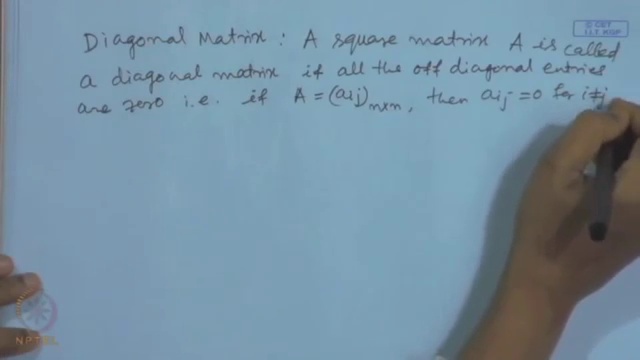 © CET
I.I.T. KGP
Diagonal Matrix : A square matrix A is called
a diagonal matrix if all the off diagonal entries
are zero i.e. if A = (aij)n×n, then aij = 0 for i≠j
NPTEL